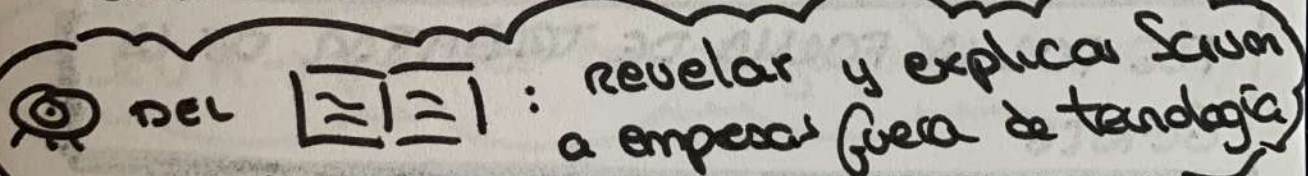 DEL : Revelar y explicar Scrum
a empresas fuera de tecnología